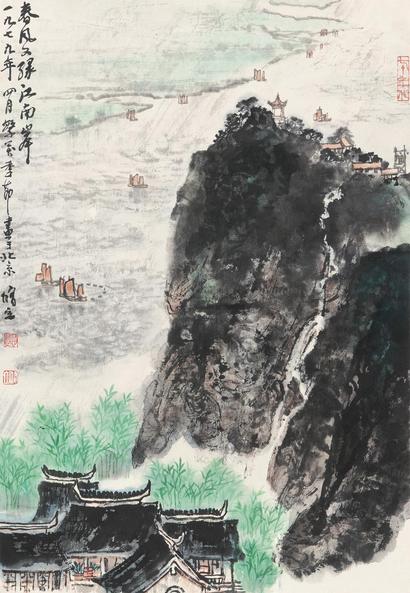 春风又绿江南岸
一九七九年四月樱花季节画于北京